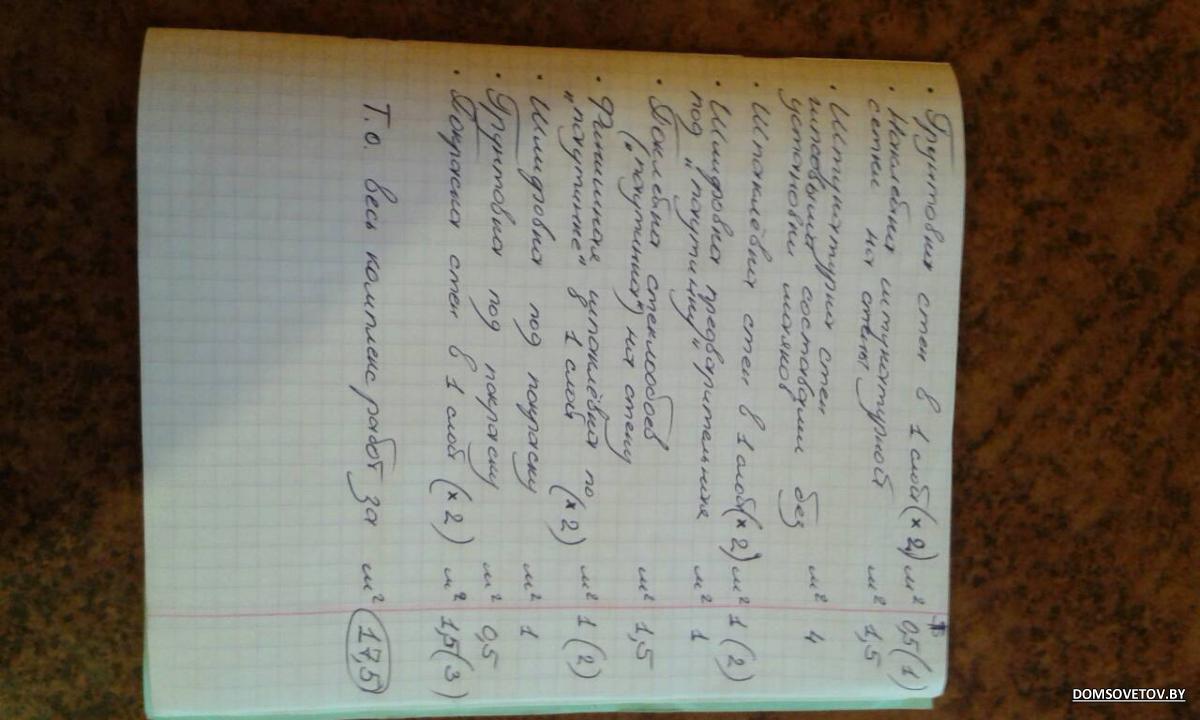 • Грунтовка стен в 1 слой (×2) м² 0,5 (1)
• Наклейка штукатурной
сетки на стены м² 1,5
• Штукатурка стен
гипсовыми составами без
установки маяков м² 4
• Шпаклёвка стен в 1 слой (×2) м² 1 (2)
• Шлифовка предварительная
под „паутинку" м² 1
• Поклейка стеклообоев
(„паутинка") на стену м² 1,5
• Финишная шпаклёвка по
„паутинке" в 1 слой (×2) м² 1 (2)
• Шлифовка под покраску м² 1
• Грунтовка под покраску м² 0,5
• Покраска стен в 1 слой (×2) м² 1,5 (3)
Т.о. весь комплекс работ за м² 17,5
DOMSOVETOV.BY